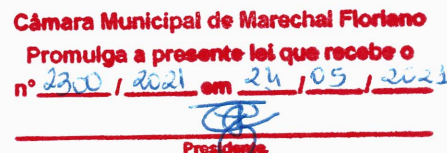 Câmara Municipal de Marechal Floriano
Promulga a presente lei que recebe o
nº 2300 / 2021 em 24 / 05 / 2021
Presidente